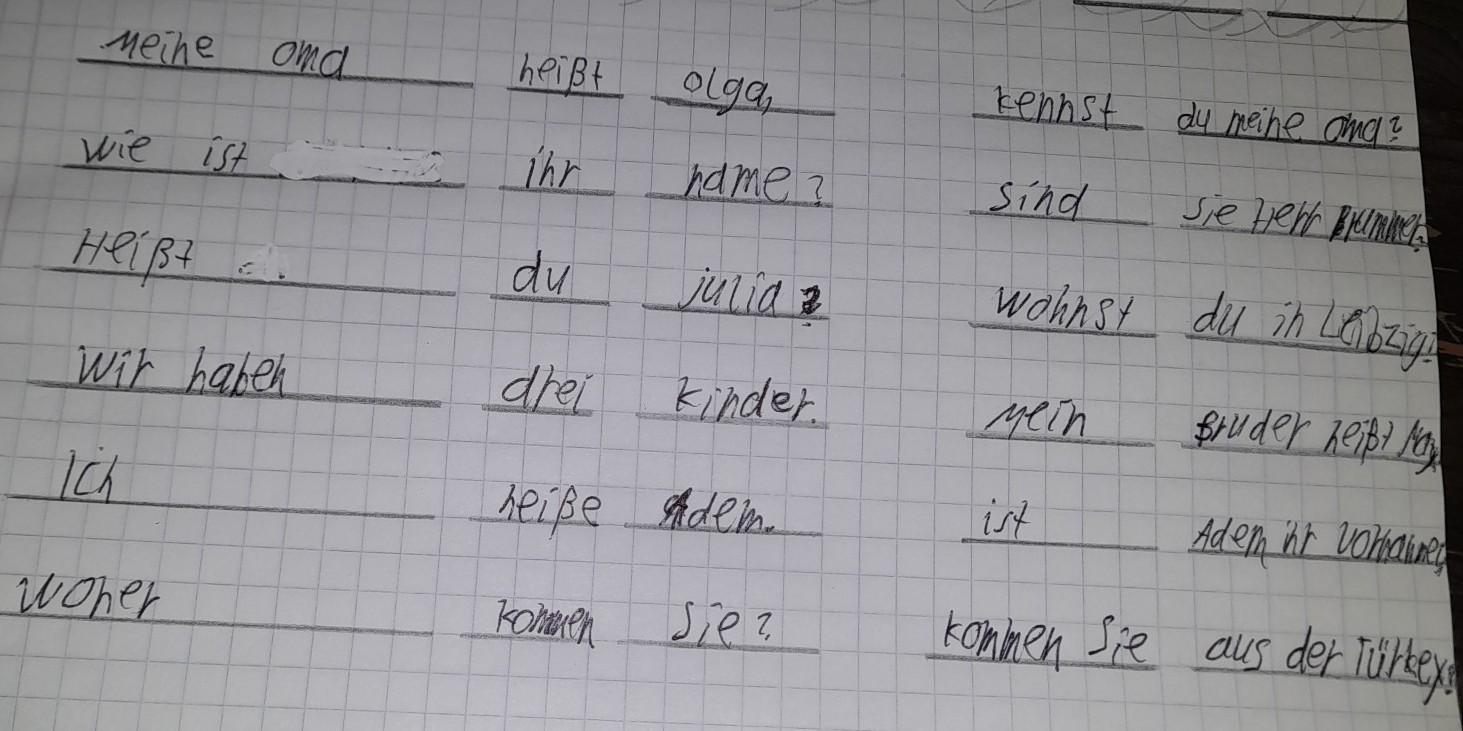 Meine oma heißt olga, kennst du meine oma?
wie ist ihr name? sind Sie Herr Brummer?
Heißt du julia? wohnst du in Leibzig?
wir haben drei kinder. Mein Bruder heißt
Ich heiße Adem. ist Adem ihr
woher kommen Sie? kommen Sie aus der Türkey?